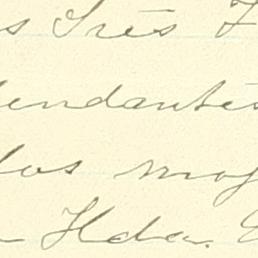 s Tres F
endantes
los moj
Hda.